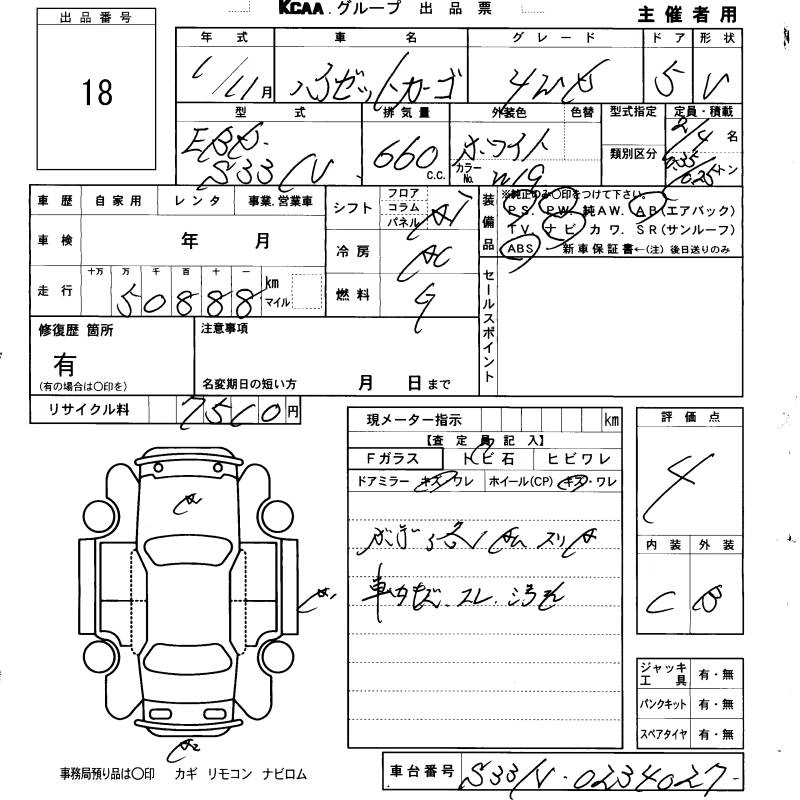 KCAA.グループ 出品票
主催者用
出品番号
18
年式 車名 グレード ドア 形状
1/11月 ハイゼットカーゴ 4WD 5 V
型式 排気量 外装色 色替 型式指定 定員・積載
EBD. 660 c.c. ホワイト 2/4名
S331V カラーNo. W19 類別区分 0.35/0.25トン
車歴 自家用 レンタ 事業.営業車
シフト フロア コラム パネル AT
装備品 ※純正のみ〇印をつけて下さい。
PS. PW. 純AW. AB(エアバック)
TV. ナビ カワ. SR(サンルーフ)
ABS 新車保証書←(注) 後日送りのみ
車検 年 月
冷房 AC
走行 十万 万 千 百 十 一
50888 km マイル
燃料 G
セールスポイント
修復歴 箇所
有
(有の場合は〇印を)
注意事項
名変期日の短い方 月 日まで
リサイクル料 7510円
現メーター指示 km
【査定員記入】
Fガラス トビ石 ヒビワレ
ドアミラー キズ・ワレ ホイール(CP) キズ・ワレ
車内 スレ.
評価点
4
内装 外装
C B
ジャッキ工具 有・無
パンクキット 有・無
スペアタイヤ 有・無
A
A1
A2
事務局預り品は〇印 カギ リモコン ナビロム
車台番号 S331V-0234027-